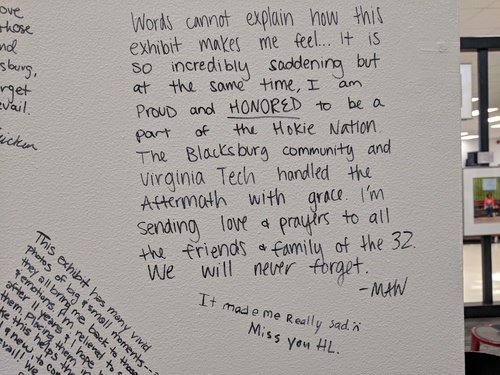 ove
those
nd
sburg,
rget
vail.
Words cannot explain how this
exhibit makes me feel... It is
so incredibly saddening but
at the same time, I am
Proud and HONORED to be a
part of the Hokie Nation.
The Blacksburg community and
Virginia Tech handled the
Aftermath with grace. I'm
sending love & prayers to all
the friends & family of the 32.
We will never forget.
-MAW
It made me Really sad :(
Miss you HL.
This exhibit has many vivid
photos of big & small moments---
they all bring me back to those
& emotions. I'm relieved to
after 11 years
them, placing them
like this helps the
& new to
evail! We